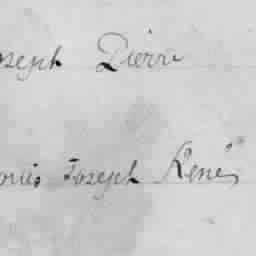 oseph Pierre
ouis Joseph René